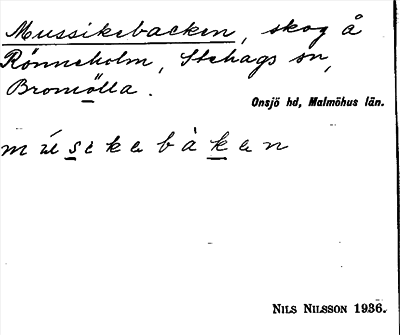 Mussikebacken, skog å
Rönneholm, Stehags sn,
Bromölla.
Onsjö hd, Malmöhus län.
músikabàkan
NILS NILSSON 1936.